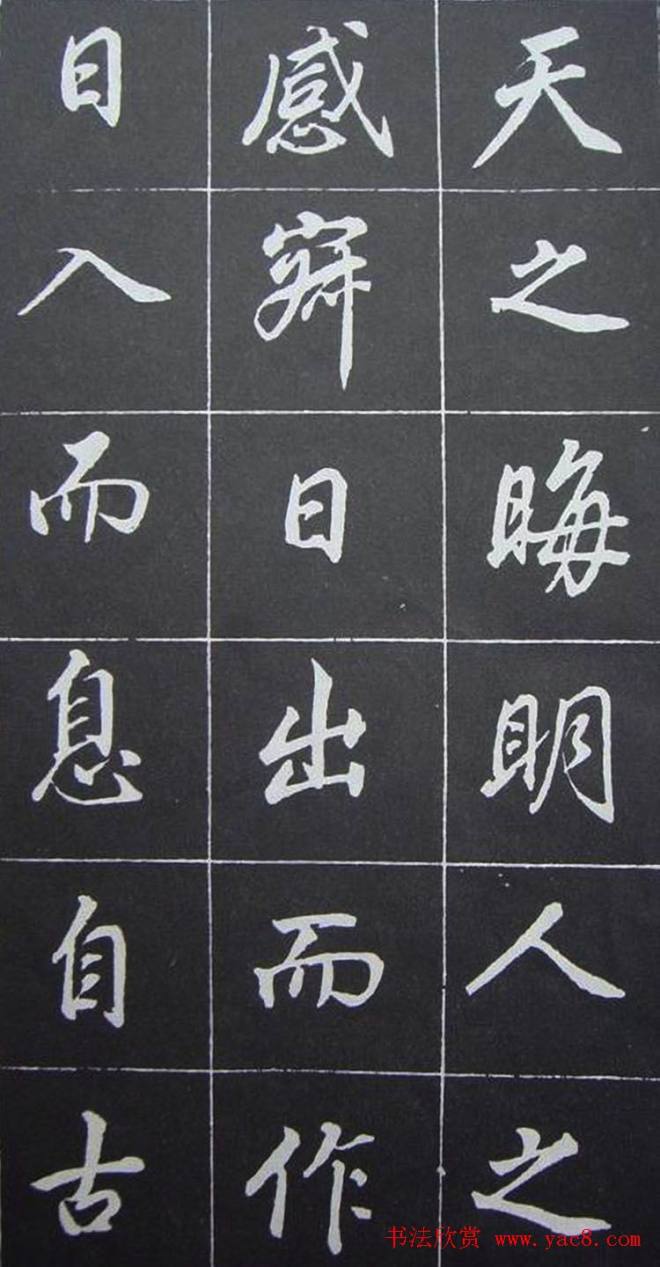 天之晦明人之
感日出而作
日入而息自古
书法欣赏 www.yac8.com